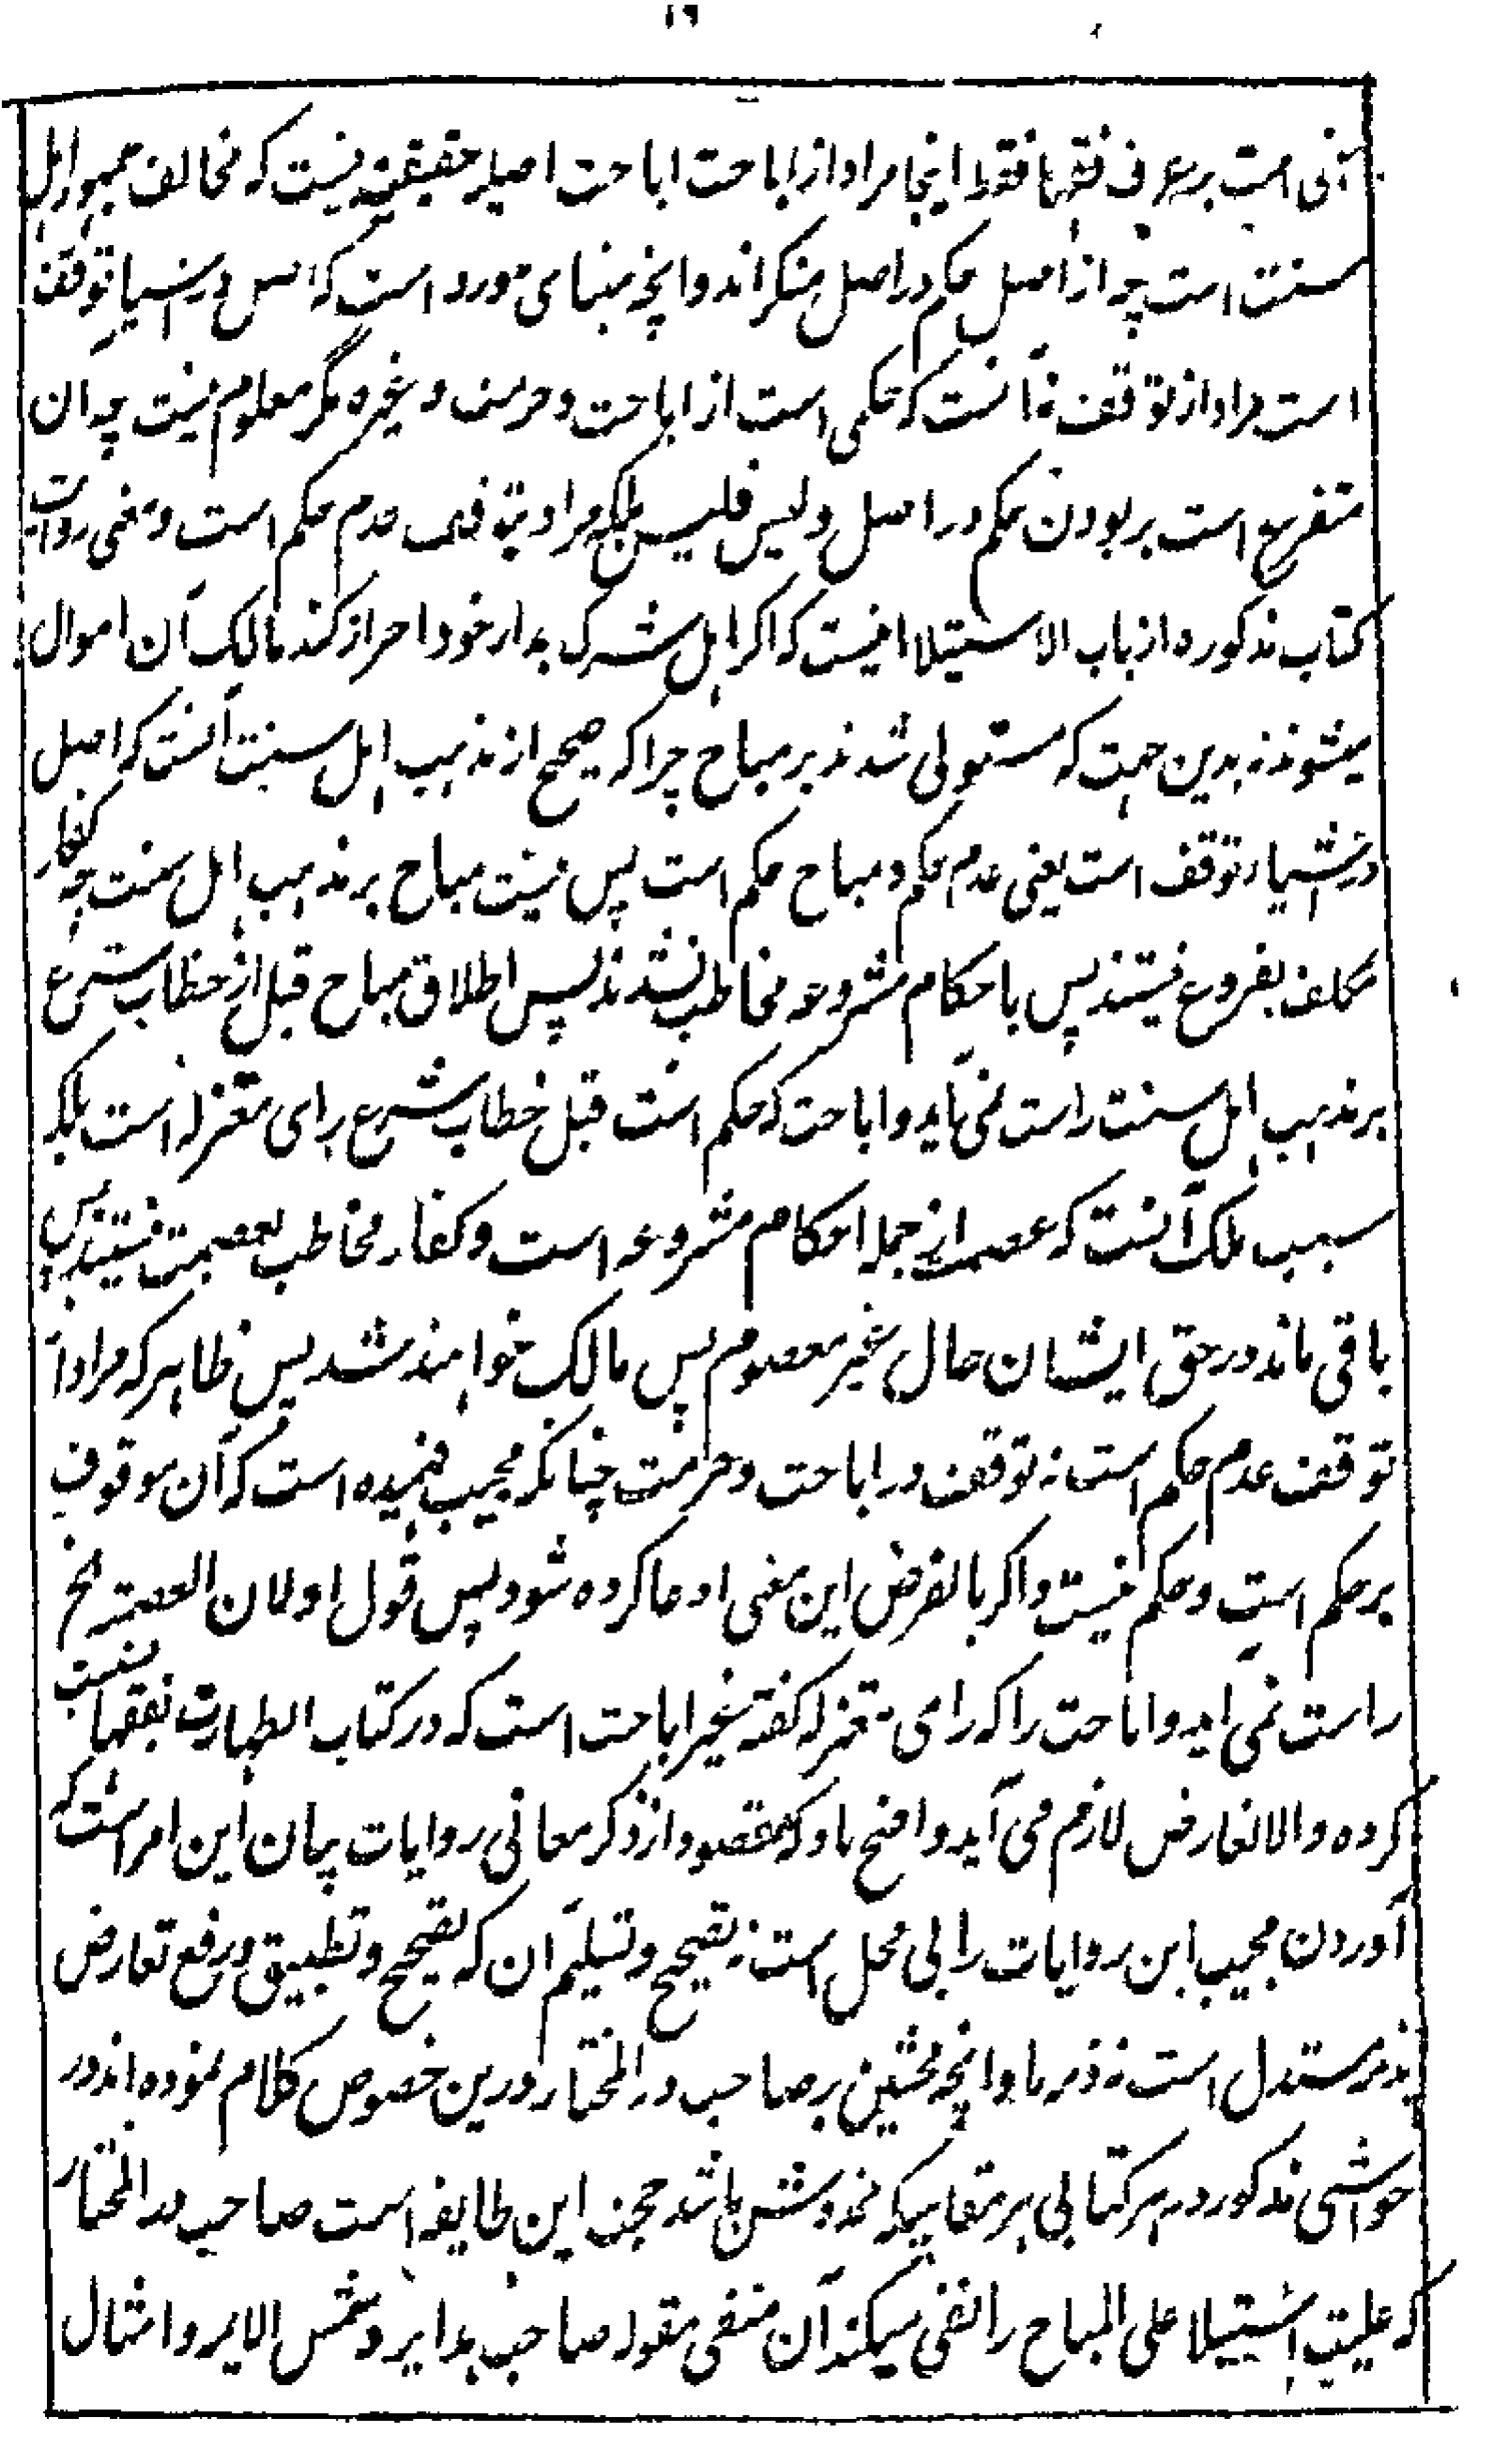 ۱۹
مبنی است بر عرف فقها فقط اینجا مراد از اباحت اباحت اصلیه حقیقیه نیست که مخالف جمهور اهل
سنت است چه از اصل حکم در اصل منکر اند و انچه مبنای مورد است که اصل در اشیا توقف
است مراد از توقف نه آنست که حکمی است از اباحت و حرمت و غیره مگر معلوم نیست چه ان
متفرع است بر بودن حکم در اصل و لیس فلیس بلکه مراد بتوقف عدم حکم است و معنی روایت
کتاب مذکوره از باب الاستیلا اینست که اگر اهل شرک بدار خود احراز کند مالک آن اموال
میشوند نه بدین جهت که مستولی شدند بر مباح چرا که صحیح از مذهب اهل سنت آنست که اصل
در اشیاء توقف است یعنی عدم حکم و مباح حکم است پس نیست مباح بر مذهب اهل سنت چه کفار
مکلف بفروع نیستند پس باحکام مشروعه مخاطب نشدند پس اطلاق مباح قبل از خطاب شرع
بر مذهب اهل سنت راست نمی آید و اباحت که حکم است قبل خطاب شرع رای معتزله است بلکه
سبب ملک آنست که عصمت از جمله احکام مشروعه است و کفار مخاطب بعصمت نیستند پس
باقی ماند در حق ایشان مال غیر معصوم پس مالک خواهند شد پس ظاهر که مراد از
توقف عدم حکم است نه توقف در اباحت و حرمت چنانکه مجیب فهمیده است که آن موقوف
بر حکم است و حکم نیست و اگر بالفرض این معنی ادعا کرده شود پس قول او لان العصمة الخ
راست نمی آید و اباحت را که رای معتزله گفته غیر اباحت است که در کتاب الطهارت بفقها نسبت
کرده و الا تعارض لازم می آید واضح باد که مقصود از ذکر معانی روایات بیان این امر است که
آوردن مجیب این روایات را بی محل است نه تصحیح و تسلیم آن که تصحیح و تطبیق و رفع تعارض
بذمه مستدل است نه ذمه ما و انچه محشین بر صاحب در المختار درین خصوص کلام نموده اند در
حواشی مذکور در هر کتابی هر مقامیکه مخدوش باشد حجت این طایفه است صاحب در المختار
که علیت استیلا علی المباح را نفی میکند آن منفی مقوله صاحب هدایه و شمس الایمه و امثال